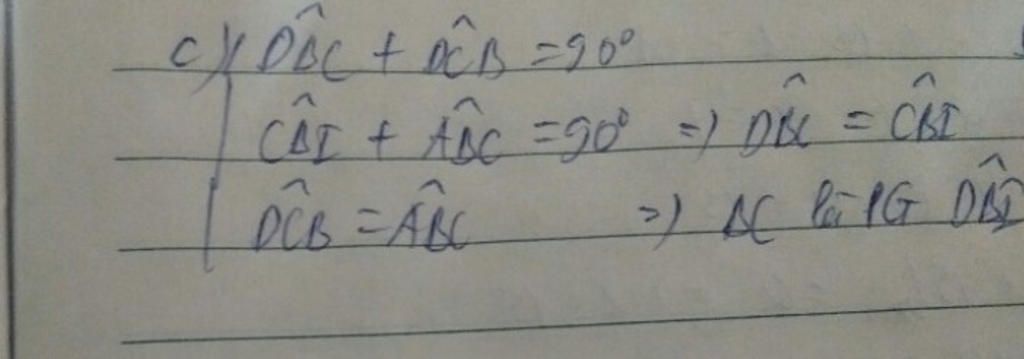 c) DB̂C + DĈB = 90°
CB̂I + AB̂C = 90° => DB̂C = CB̂I
DĈB = AB̂C => BC là PG DB̂I